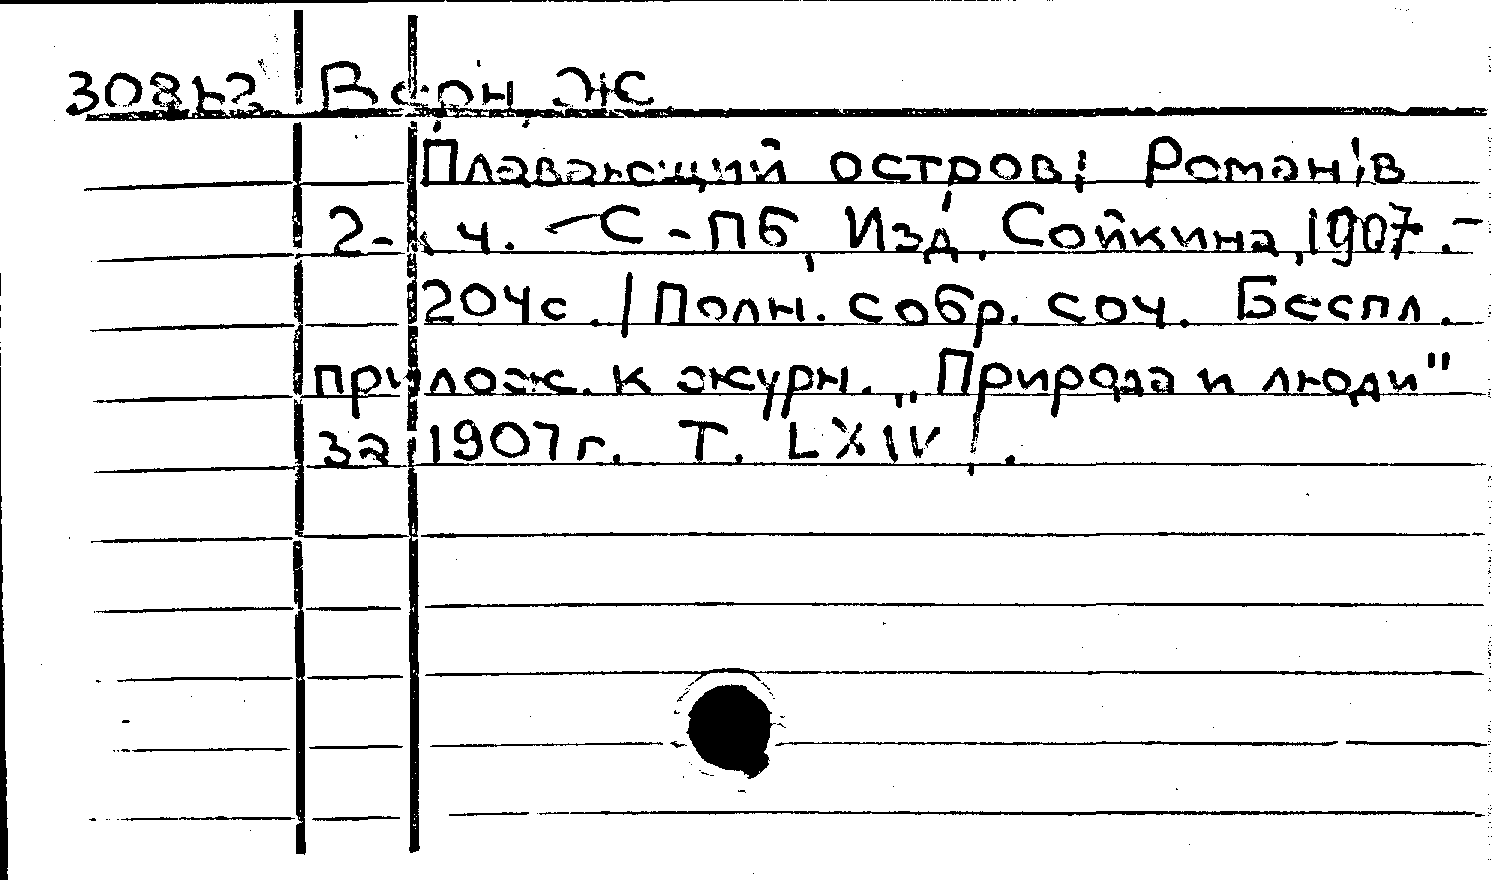 308к2 Верн, Ж
Плавающий остров: Роман в
2-х ч. - С-ПБ, Изд. Сойкина, 1907. -
204с. /Полн. собр. соч. Беспл.
прилож. к журн. „Природа и люди"
за 1907г. Т. LXIV/.